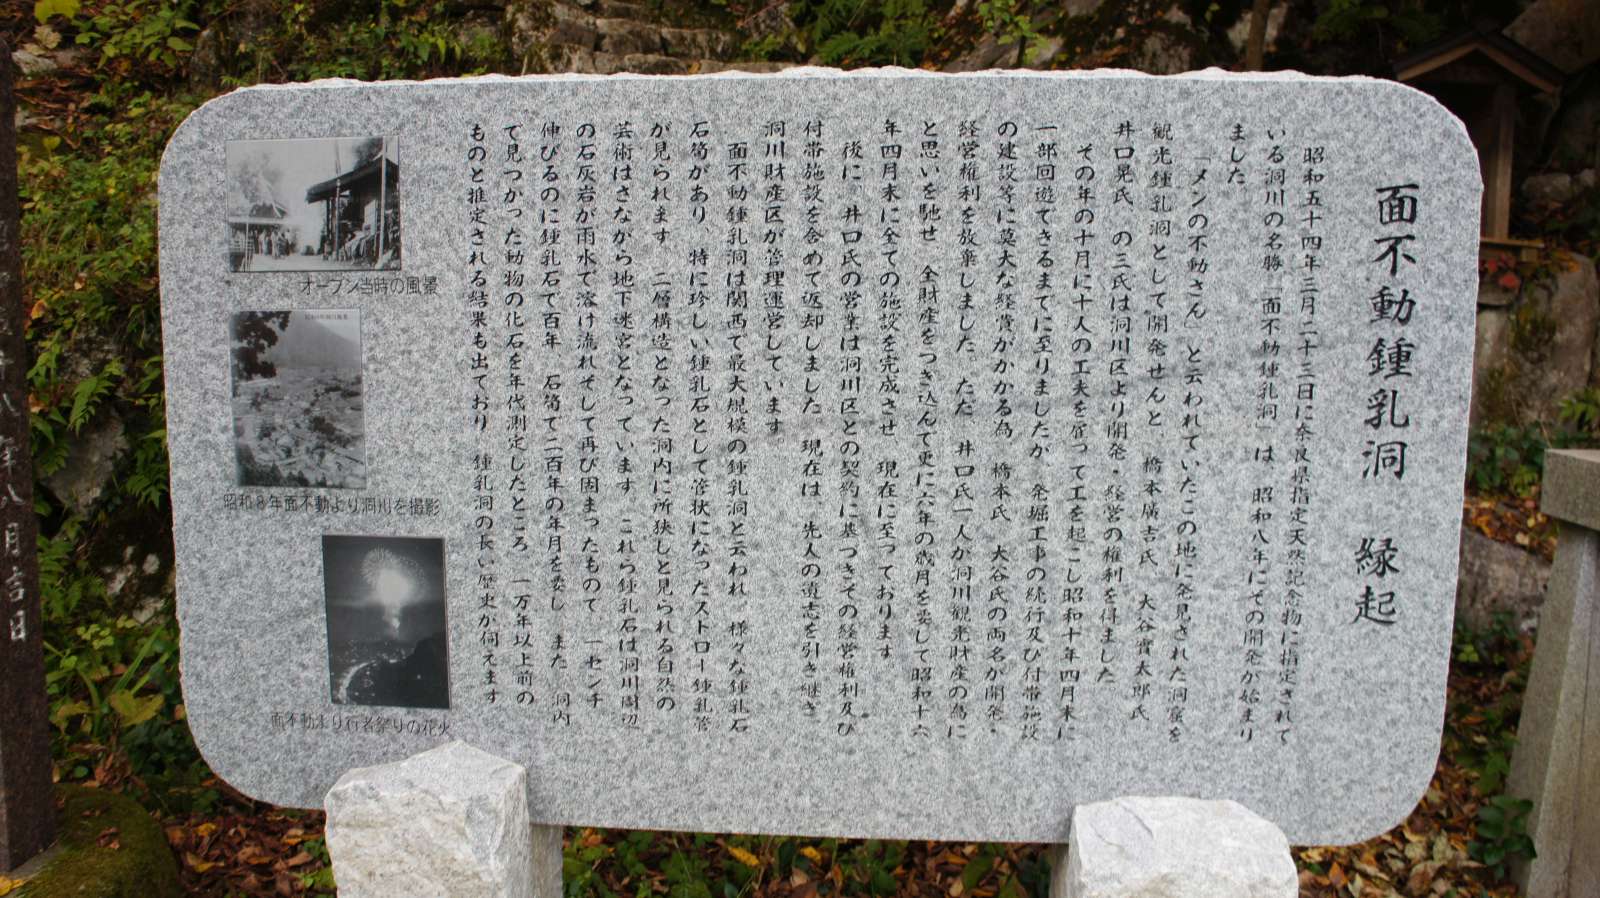 面不動鍾乳洞　縁起
昭和五十四年三月二十三日に奈良県指定天然記念物に指定されて
いる洞川の名勝「面不動鍾乳洞」は、昭和八年にその開発が始まり
ました
「メンの不動さん」と云われていたこの地に発見された洞窟を
観光鍾乳洞として開発せんと、橋本廣吉氏　大谷實太郎氏
井口晃氏　の三氏は洞川区より開発・経営の権利を得ました。
その年の十月に十人の工夫を雇って工を起こし昭和十年四月末に
一部回遊できるまでに至りましたが　発掘工事の続行及び付帯施設
の建設等に莫大な経費がかかる為　橋本氏　大谷氏の両名が開発・
経営権利を放棄しました。ただ、井口氏一人が洞川観光財産の為に
と思いを馳せ　全財産をつぎ込んで更に六年の歳月を要して昭和十六
年四月末に全ての施設を完成させ、現在に至っております
後に　井口氏の営業は洞川区との契約に基づきその経営権利及び
付帯施設を含めて返却しました。現在は、先人の遺志を引き継ぎ
洞川財産区が管理運営しています
面不動鍾乳洞は関西で最大規模の鍾乳洞と云われ、様々な鍾乳石
石筍があり、特に珍しい鍾乳石として管状になったストロー鍾乳管
が見られます　二層構造となった洞内に所狭しと見られる自然の
芸術はさながら地下迷宮となっています　これら鍾乳石は洞川周辺
の石灰岩が雨水で溶け流れそして再び固まったもので、一センチ
伸びるのに鍾乳石で百年　石筍で二百年の年月を要し　また　洞内
で見つかった動物の化石を年代測定したところ　一万年以上前の
ものと推定される結果も出ており　鍾乳洞の長い歴史が伺えます
オープン当時の風景
昭和8年面不動より洞川を撮影
面不動より行者祭りの花火
年八月吉日